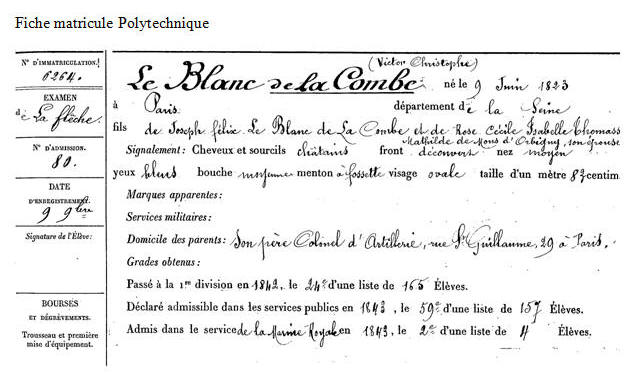 Fiche matricule Polytechnique
N° D'IMMATRICULATION.
6264.
EXAMEN
de La flèche.
N° D'ADMISSION.
80.
DATE
D'ENREGISTREMENT.
9 9bre
Signature de l'Élève:
BOURSES
ET DÉGRÈVEMENTS.
Trousseau et première
mise d'équipement.
(Victor Christophe)
Le Blanc de la Combe né le 9 Juin 1823
à Paris département de la Seine
fils de Joseph félix Le Blanc de La Combe et de Rose Cécile Isabelle Thomass
Mathilde de Mons d'Orbigny, son épouse
Signalement: Cheveux et sourcils châtains front découvert nez moyen
yeux bleus bouche moyenne menton à fossette visage ovale taille d'un mètre centim
Marques apparentes:
Services militaires:
Domicile des parents: Son père Colonel d'Artillerie, rue St Guillaume, 29 à Paris.
Grades obtenus:
Passé à la 1re division en 1842, le 24e d'une liste de 165 Élèves.
Déclaré admissible dans les services publics en 1843, le 59e d'une liste de 157 Élèves.
Admis dans le service de la Marine Royale en 1843, le 2e d'une liste de 4 Élèves.